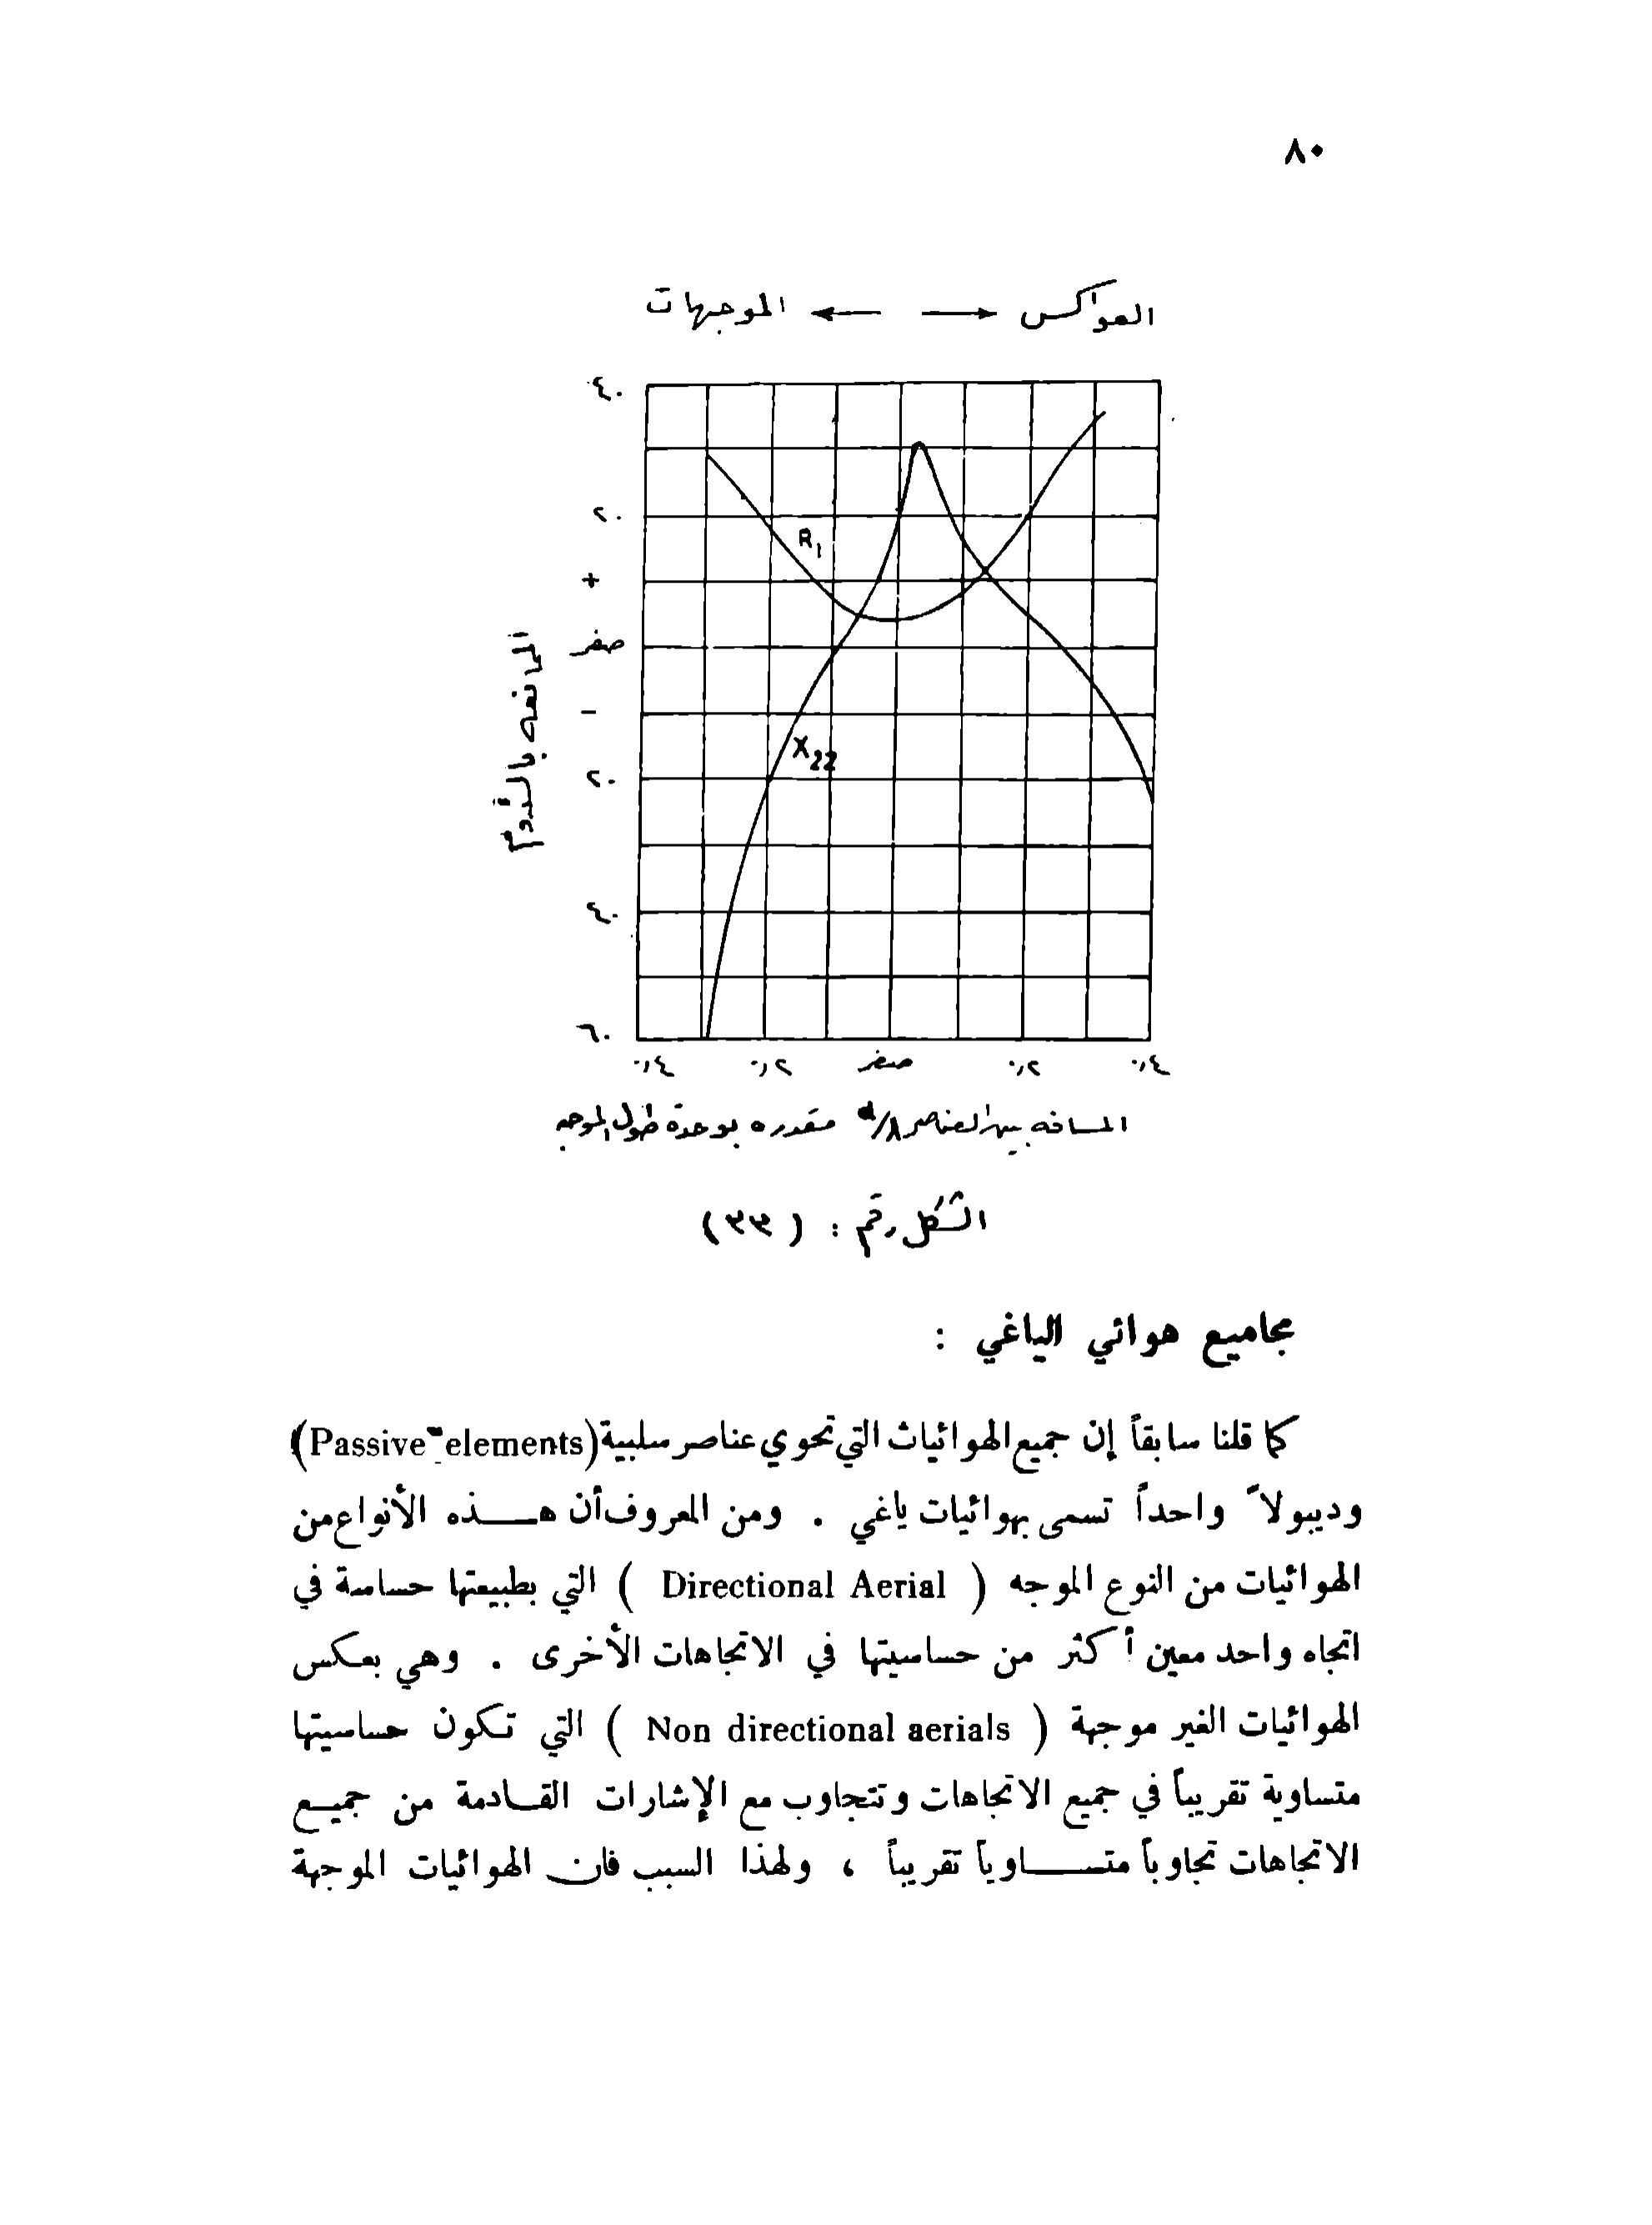 ٨٠
العواكس → ← الموجهات
٤٠
٢٠
+
صفر
-
٢٠
٤٠
٦٠
الممانعه بالأوم
R₁
X₂₂
٠,٤ ٠,٢ صفر ٠,٢ ٠,٤
المسافه بين العناصر d/λ مقدره بوحدة طول الموجه
الشكل رقم : (٣٣)
مجاميع هوائي الياغي :
كما قلنا سابقاً إن جميع الهوائيات التي تحوي عناصر سلبية (Passive elements)
وديبولاً واحداً تسمى بهوائيات ياغي . ومن المعروف أن هـــذه الأنواع من
الهوائيات من النوع الموجه ( Directional Aerial ) التي بطبيعتها حساسة في
اتجاه واحد معين أكثر من حساسيتها في الاتجاهات الأخرى . وهي بعكس
الهوائيات الغير موجهة ( Non directional aerials ) التي تكون حساسيتها
متساوية تقريباً في جميع الاتجاهات وتتجاوب مع الإشارات القـادمة من جميـع
الاتجاهات تجاوباً متســـاوياً تقريباً ، ولهذا السبب فان الهوائيات الموجهة